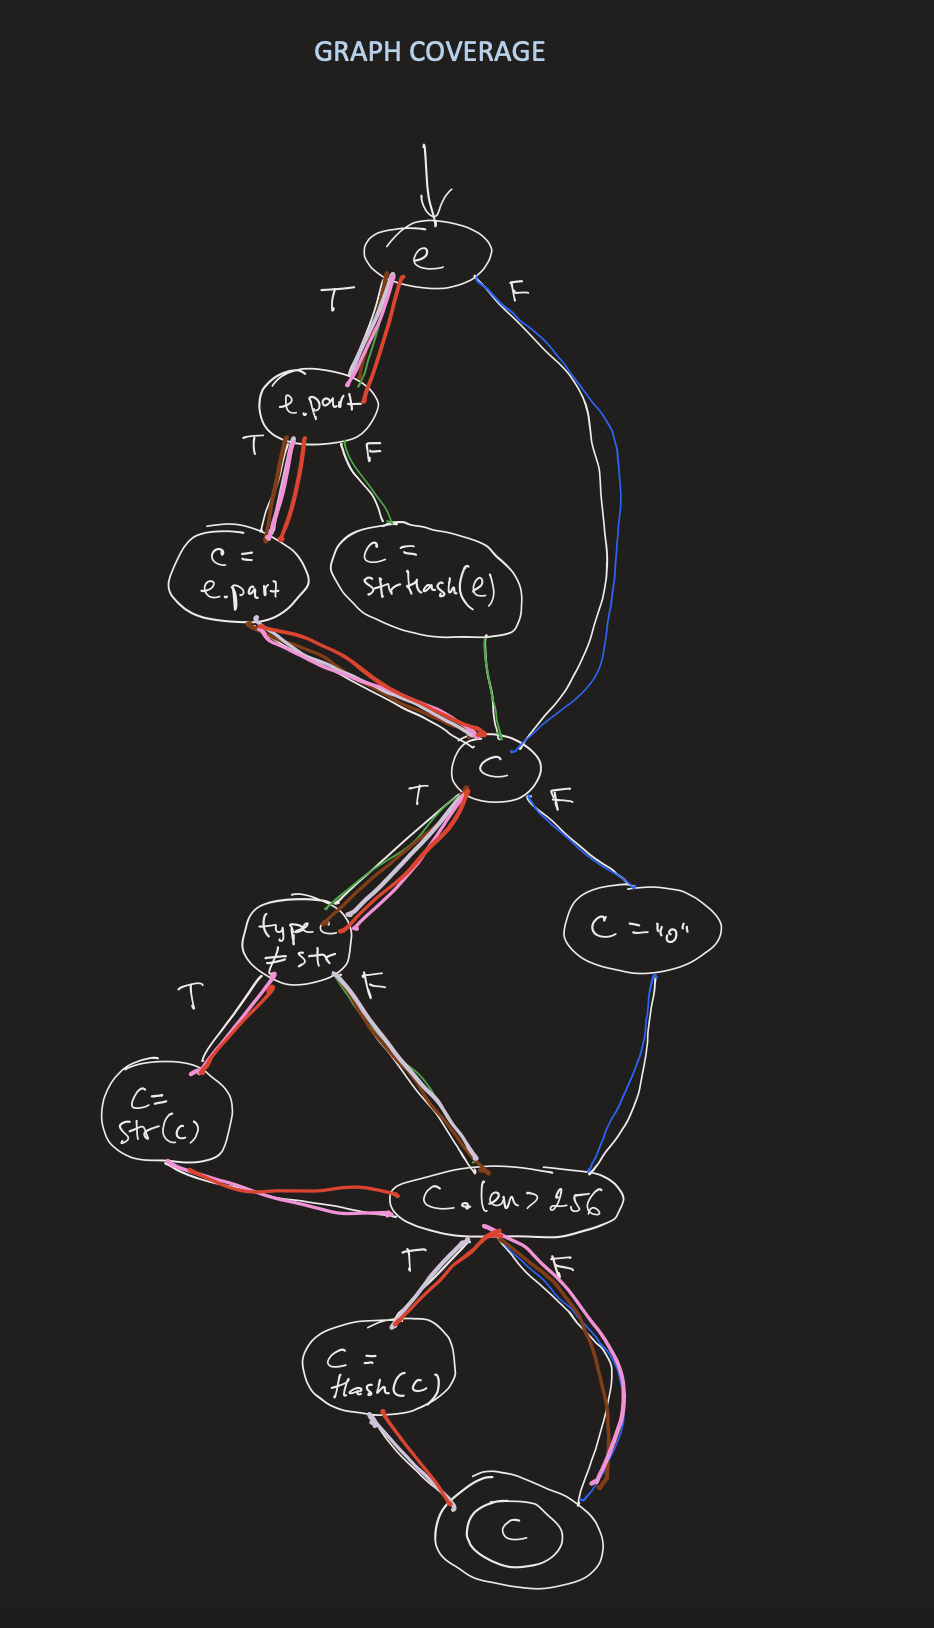 GRAPH COVERAGE
e
T
F
e.part
T
F
C =
e.part
C =
strHash(e)
C
T
F
type C
≠ str
C = "0"
T
F
C=
str(c)
C.len > 256
T
F
C =
Hash(c)
C